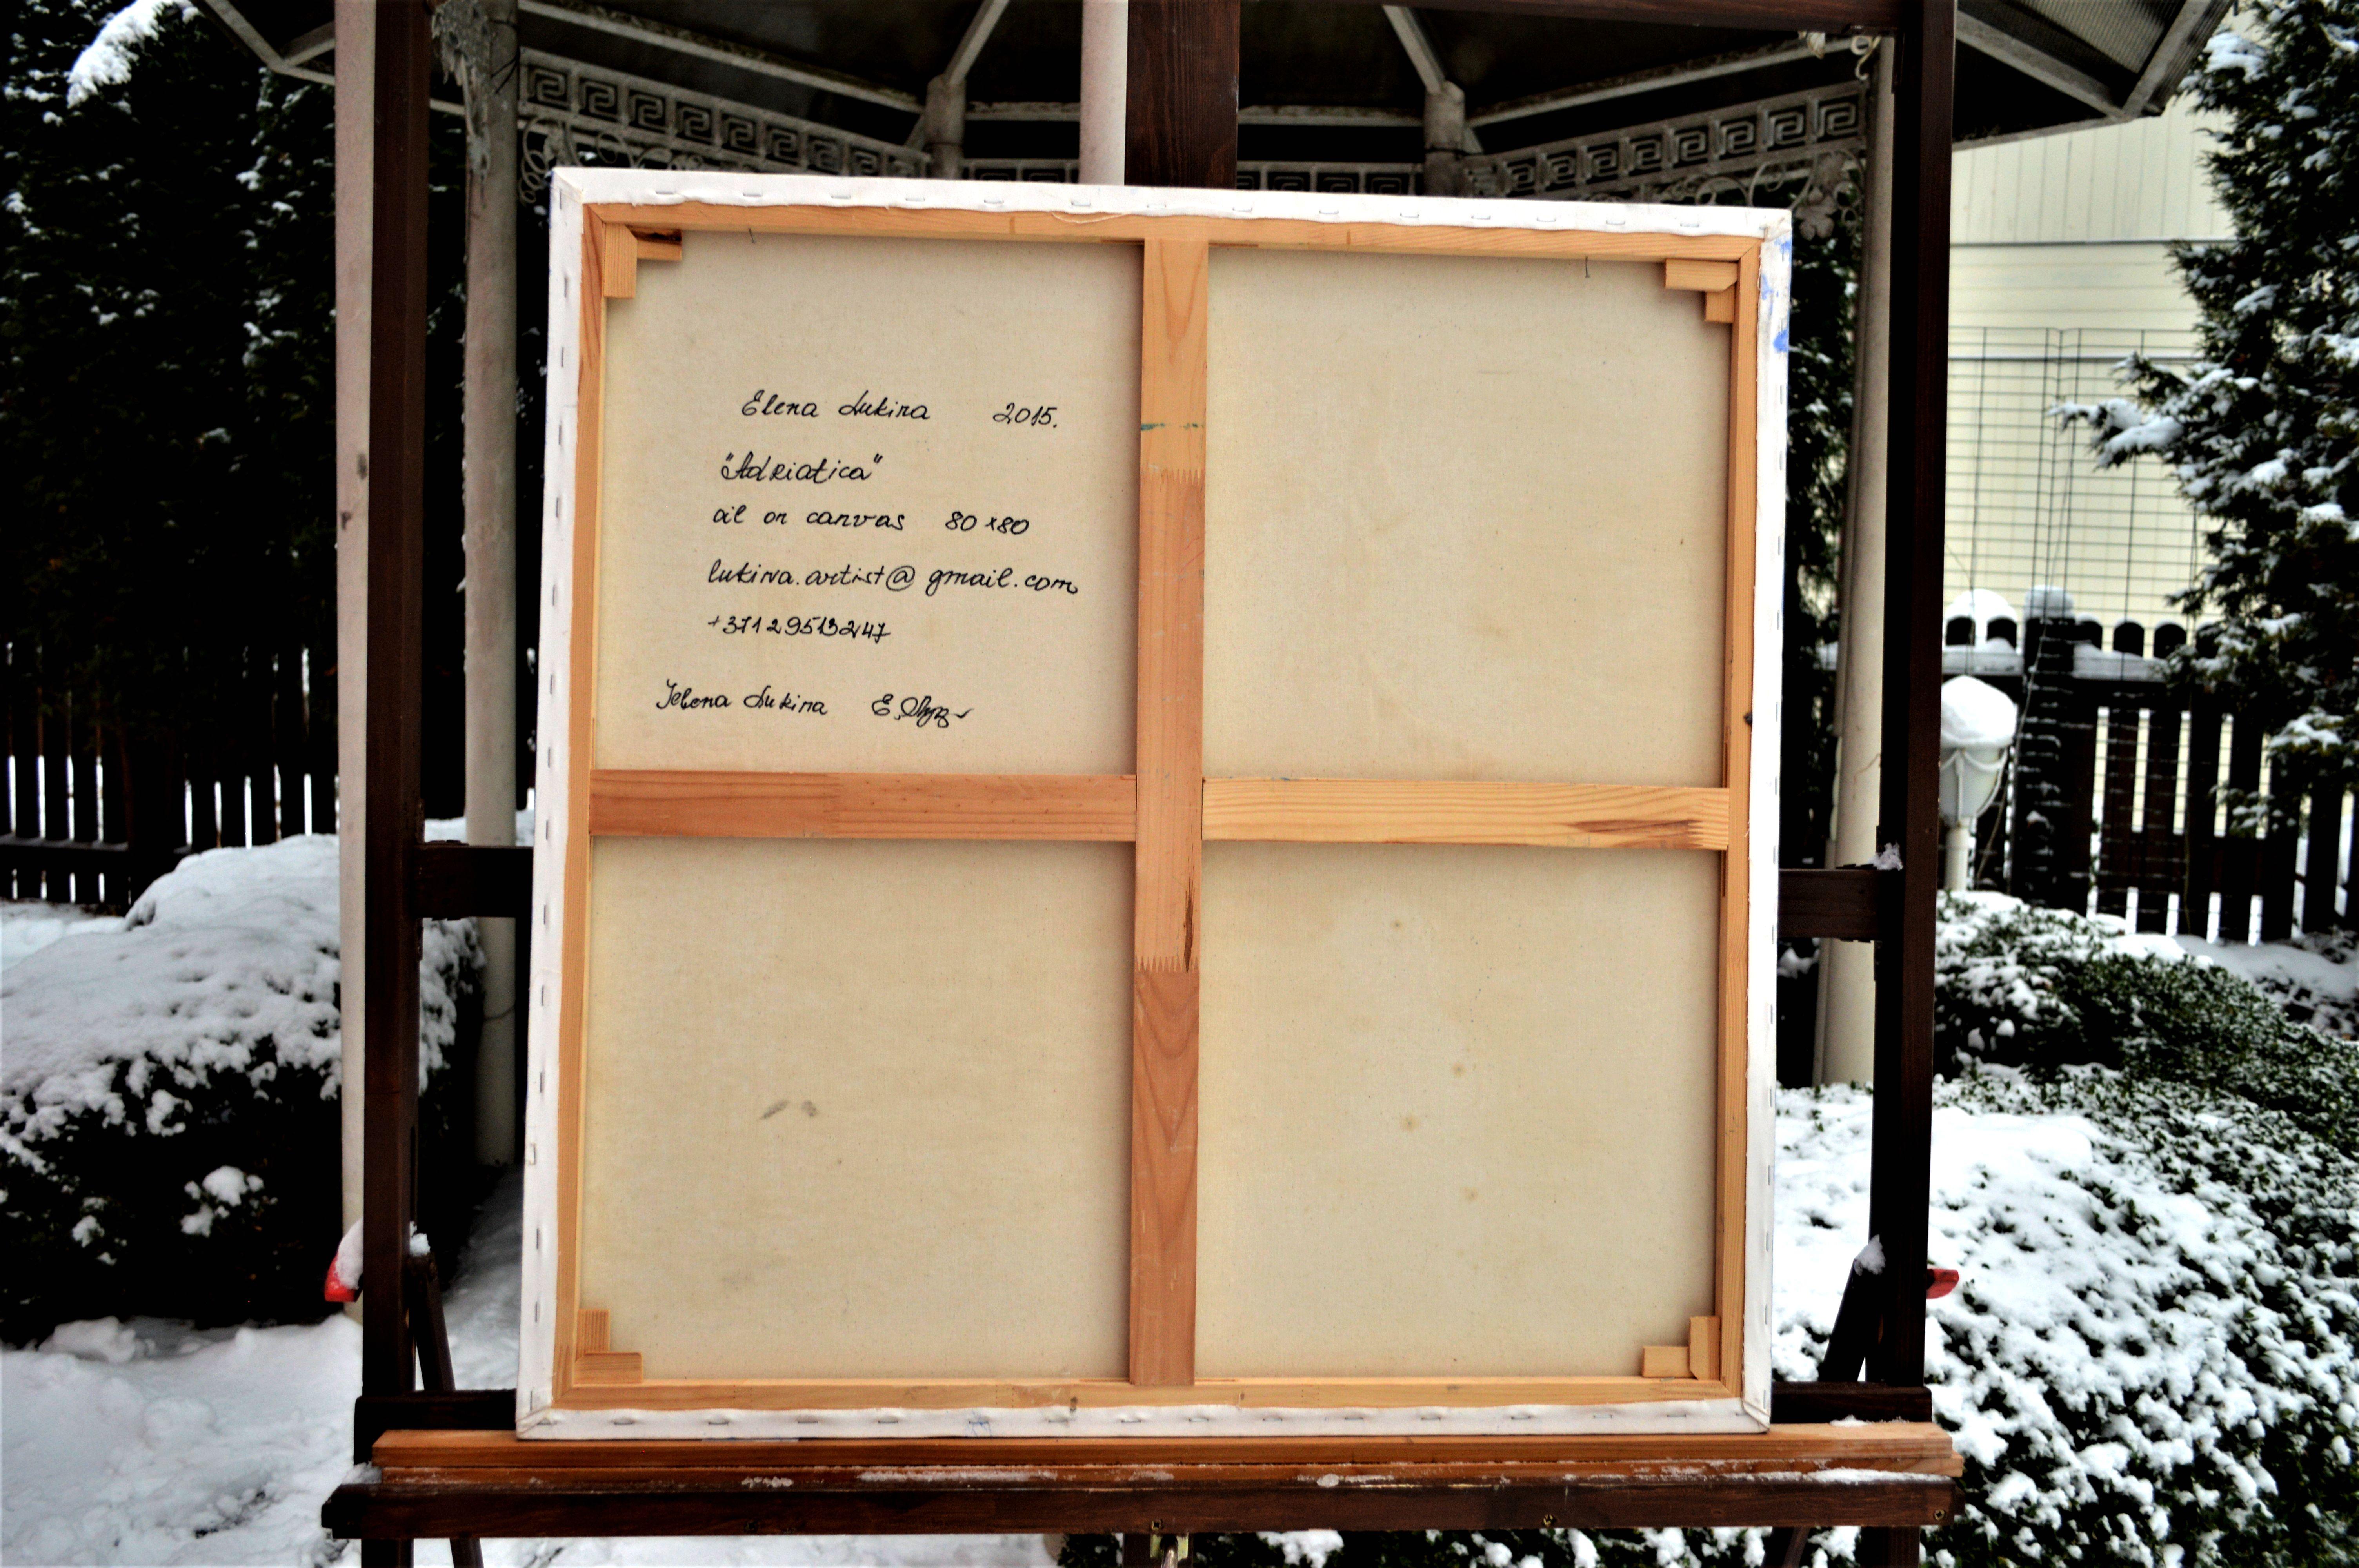 Elena Lukina 2015.
"Adriatica"
oil on canvas 80x80
lukina.artist@gmail.com
+37129513247
Jelena Lukina